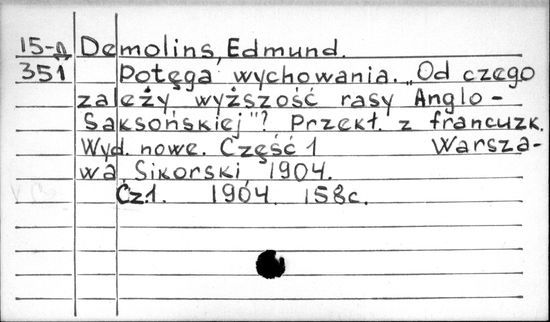 15-п Demolins, Edmund.
351 Potęga wychowania. „Od czego
zależy wyższość rasy Anglo-
Saksońskiej"? Przekł. z francuzk.
Wyd. nowe. Część 1 Warsza-
wa, Sikorski, 1904.
Cz.1. 1904. 158c.